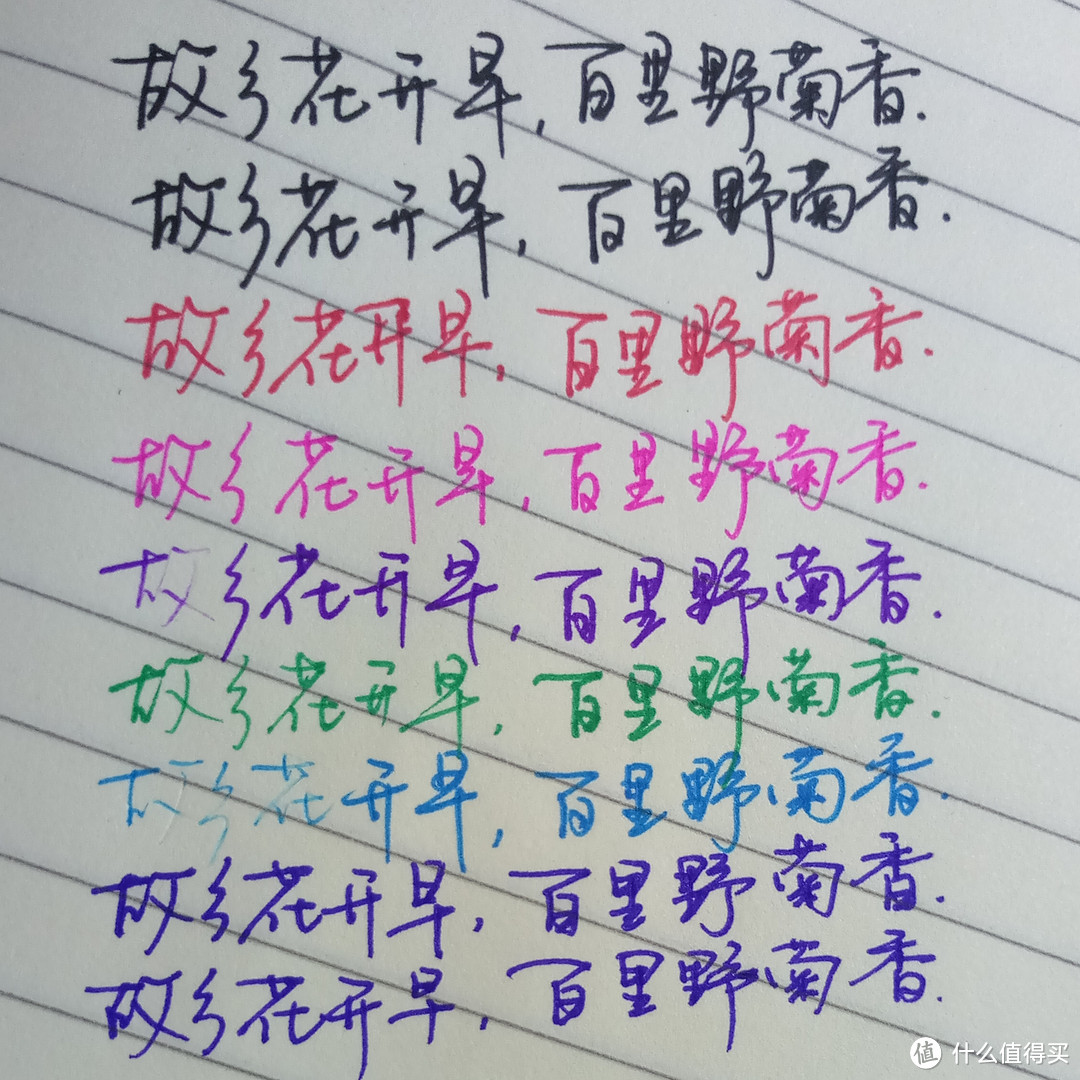 故乡花开早,百里野菊香.
故乡花开早,百里野菊香.
故乡花开早,百里野菊香.
故乡花开早,百里野菊香.
故乡花开早,百里野菊香.
故乡花开早,百里野菊香.
故乡花开早,百里野菊香.
故乡花开早,百里野菊香.
故乡花开早,百里野菊香.
值 什么值得买